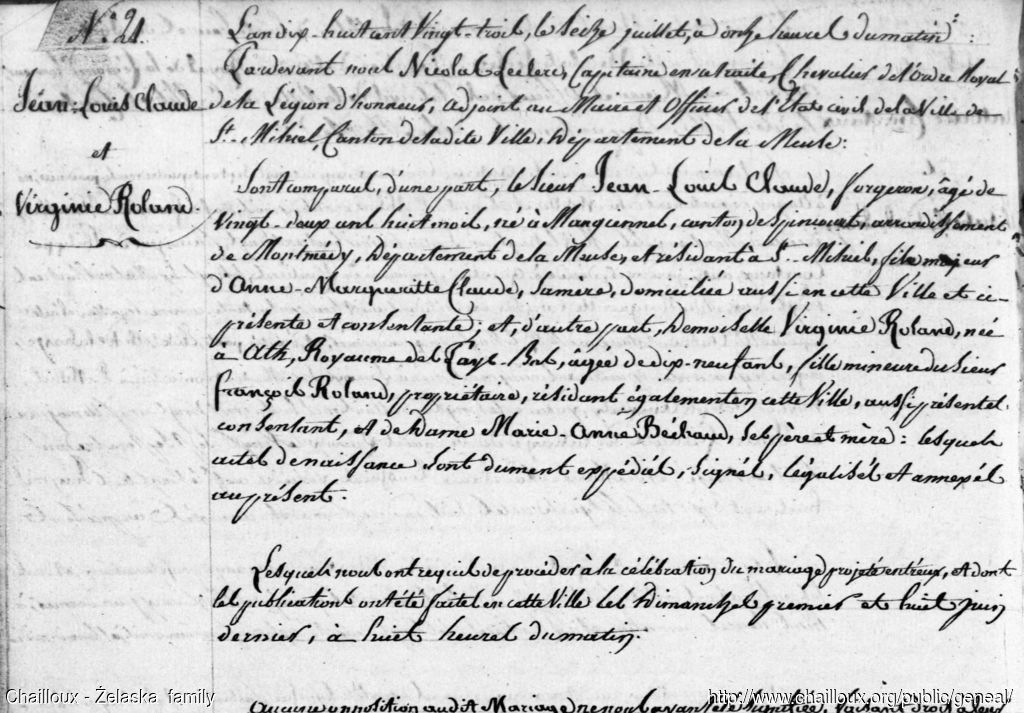 N.° 21.
Jean-Louis Claude
et
Virginie Roland.
L'an dix-huit cent Vingt-trois, le Seize juillet, à onze heures du matin:
Pardevant nous Nicolas Leclerc, Capitaine en retraite, Chevalier de l'Ordre Royal
de la Légion d'honneur, adjoint au Maire et Officier de l'Etat civil de la Ville de
St. Mihiel, Canton de la dite Ville, Département de la Meuse:
Sont comparus, d'une part, le sieur Jean-Louis Claude, forgeron, âgé de
Vingt-deux ans huit mois, né à Mangiennes, canton de Spincourt, arrondissement
de Montmédy, Département de la Meuse, et résidant à St. Mihiel, fils majeur
d'Anne-Margueritte Claude, sa mère, domiciliée aussi en cette Ville et ci-
présente et consentante; et, d'autre part, Demoiselle Virginie Roland, née
à Ath, Royaume des Pays-Bas, âgée de dix-neuf ans, fille mineure du Sieur
François Roland, propriétaire, résidant également en cette Ville, aussi présent et
consentant, et de Dame Marie-Anne ses père et mère: lesquels
actes de naissance sont dument expédiés, signés, légalisés et annexés
au présent.
Lesquels nous ont requis de procéder à la célébration du mariage projeté entr'eux, et dont
les publications ont été faites en cette Ville les Dimanches premier et huit juin
dernier, à huit heures du matin.
Aucune opposition au dit Mariage ne nous ayant été signifiée, faisant droit à leur
Chailloux - Żelaska family
http://www.chailloux.org/public/geneal/